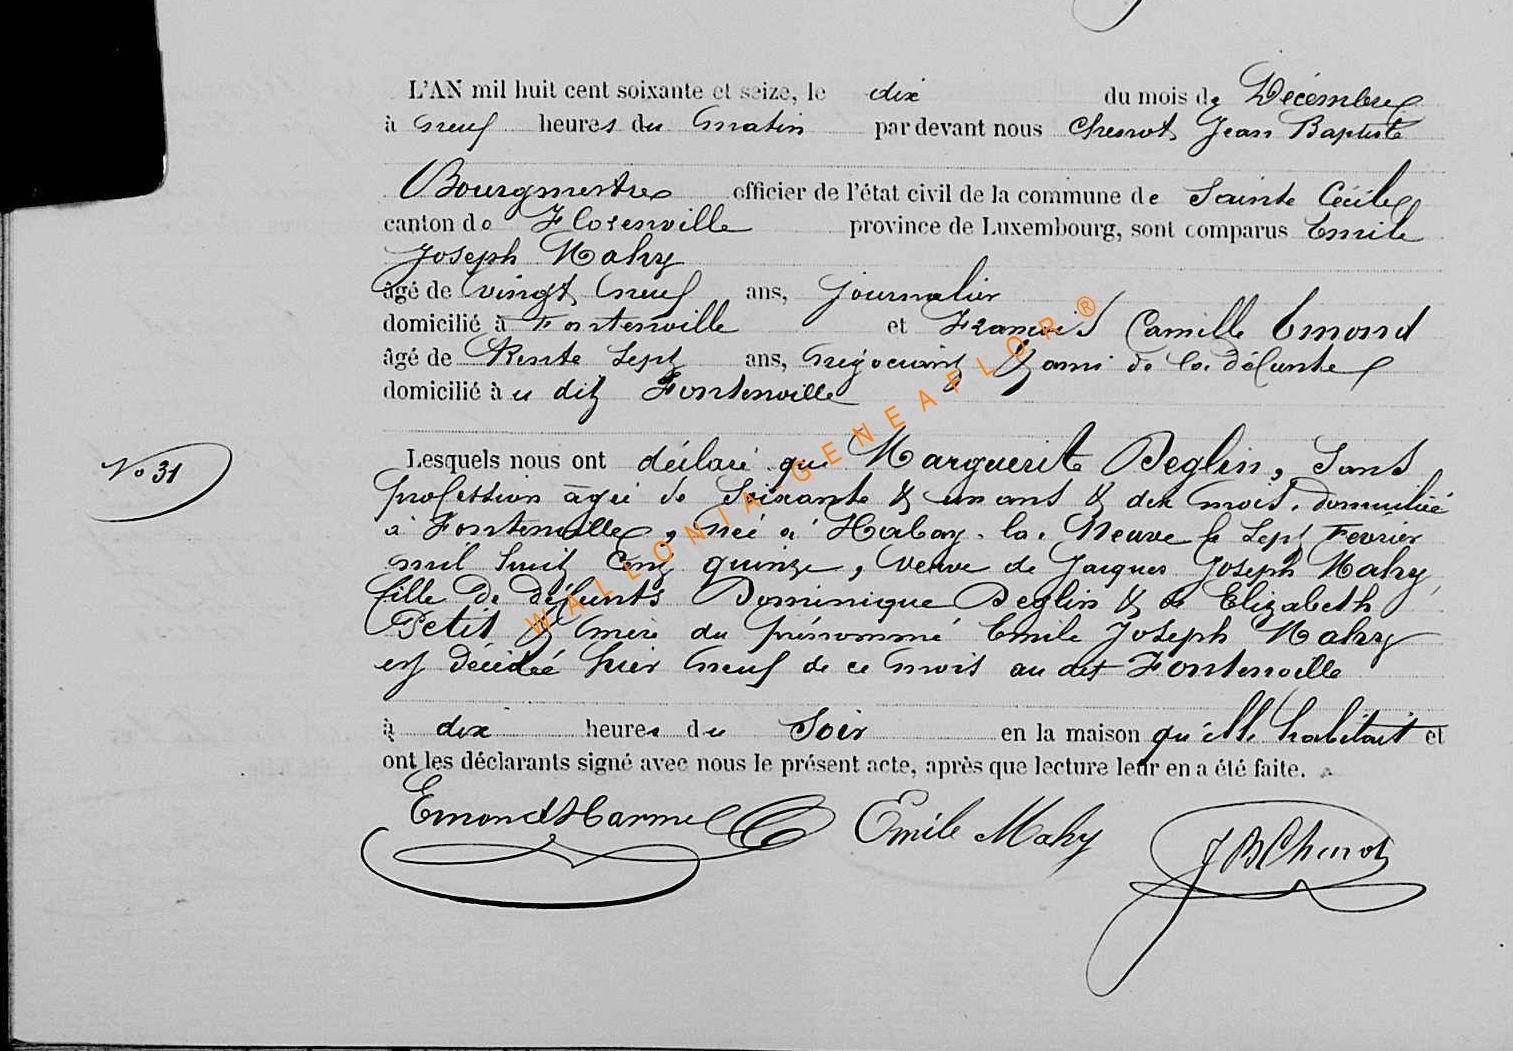 L'AN mil huit cent soixante et seize, le dix du mois de Décembre
à neuf heures du matin par devant nous Chenot Jean Baptiste
Bourgmestre officier de l'état civil de la commune de Sainte Cécile
canton de Florenville province de Luxembourg, sont comparus Emile
Joseph Mahy
âgé de vingt neuf ans, journalier
domicilié à Fontenville et François Camille Emond
âgé de Trente Sept ans, négociant & ami de la défunte
domicilié à u dit Fontenville
No 31
Lesquels nous ont déclaré que Marguerite Deglin, Sans
profession âgée de Soixante & un ans & dix mois, domiciliée
à Fontenville, née à Habay-la-Neuve le Sept Fevrier
mil huit cent quinze, veuve de Jacques Joseph Mahy,
fille de défunts Dominique Deglin & de Elizabeth
Petit & mère du prénommé Emile Joseph Mahy
est décédée hier neuf de ce mois au dit Fontenville
à dix heures du Soir en la maison qu'elle habitait et
ont les déclarants signé avec nous le présent acte, après que lecture leur en a été faite.
Emond Harmel Emile Mahy J B Chenot
WALLONIA-GENEAFLOR®